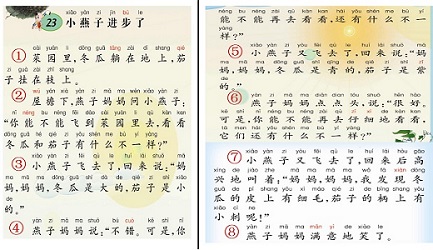 xiǎo yàn zi jìn bù le
23 小燕子进步了
cài yuán lǐ dōng guā tǎng zài dì shang qié
① 菜园里，冬瓜躺在地上，茄
zi guà zài zhī shàng
子挂在枝上。
wū yán xià yàn zi mā ma wèn xiǎo yàn zi
② 屋檐下，燕子妈妈问小燕子：
nǐ néng bu néng fēi dào cài yuán lǐ qù kàn kan
“你能不能飞到菜园里去看看
dōng guā hé qié zi yǒu shén me bù yí yàng
冬瓜和茄子有什么不一样？”
xiǎo yàn zi fēi qù le huí lái shuō mā
③ 小燕子飞去了，回来说：“妈
ma mā ma dōng guā shì dà de qié zi shì xiǎo
妈，妈妈，冬瓜是大的，茄子是小
de
的。”
yàn zi mā ma shuō bú cuò kě shì nǐ
④ 燕子妈妈说：“不错。可是，你
néng bu néng zài qù kàn kan hái yǒu shén me bù yí
能不能再去看看，还有什么不一
yàng
样？”
xiǎo yàn zi yòu fēi qù le huí lái shuō mā
⑤ 小燕子又飞去了，回来说：“妈
ma mā ma dōng guā shì qīng de qié zi shì zǐ
妈，妈妈，冬瓜是青的，茄子是紫
de
的。”
yàn zi mā ma diǎn dian tóu shuō hěn hǎo
⑥ 燕子妈妈点点头，说：“很好。
kě shì nǐ néng bu néng zài qù zǐ xì de kàn kan
可是，你能不能再去仔细地看看，
tā men hái yǒu shén me bù yí yàng
它们还有什么不一样？”
xiǎo yàn zi yòu fēi qù le huí lái hòu gāo
⑦ 小燕子又飞去了，回来后高
xìng de jiào zhe mā ma mā ma wǒ fā xiàn dōng
兴地叫着：“妈妈，妈妈，我发现冬
guā de pí shàng yǒu xì máo qié zi de bǐng shàng yǒu
瓜的皮上有细毛，茄子的柄上有
xiǎo cì ne
小刺呢！”
yàn zi mā ma mǎn yì de xiào le
⑧ 燕子妈妈满意地笑了。